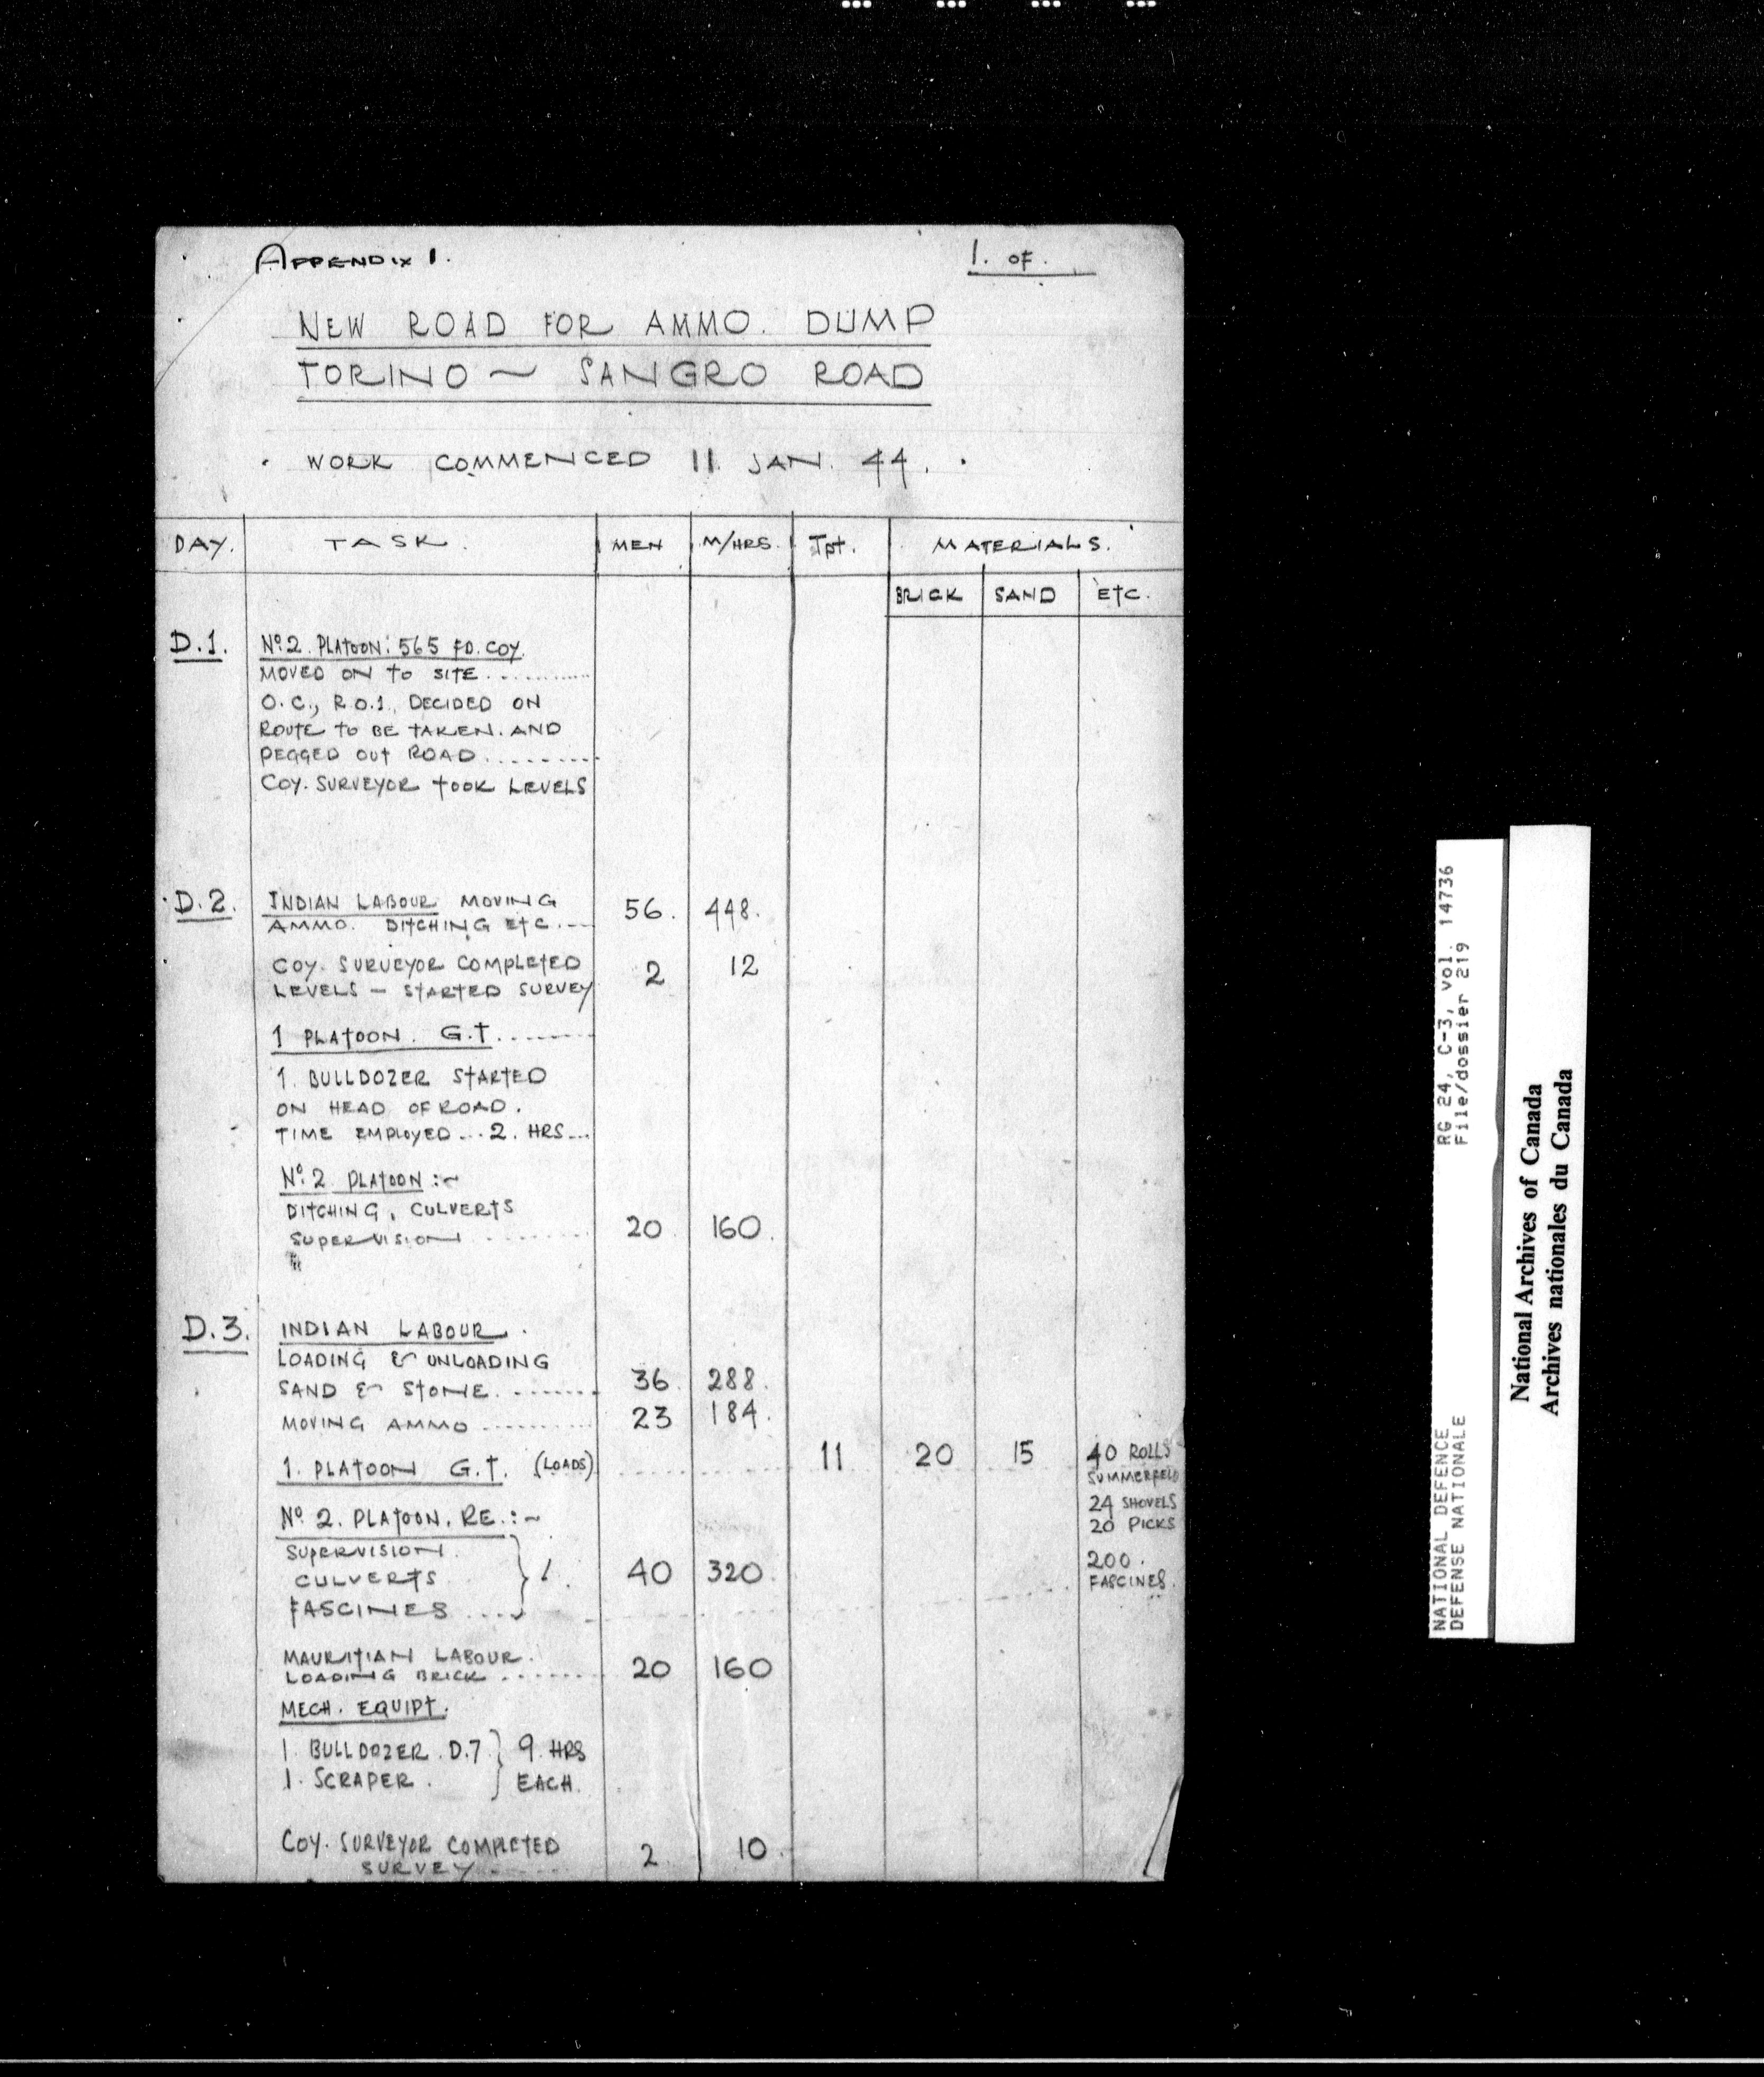 APPENDIX 1.
1. OF.
NEW ROAD FOR AMMO. DUMP
TORINO ~ SANGRO ROAD
WORK COMMENCED 11. JAN. 44.
DAY. TASK. MEN M/HRS. Tpt. MATERIALS.
BRICK SAND ETC.
D.1. Nº 2. PLATOON: 565 FD. COY.
MOVED ON TO SITE............
O.C., R.O.1., DECIDED ON
ROUTE TO BE TAKEN. AND
PEGGED OUT ROAD.........
COY. SURVEYOR TOOK LEVELS
D.2. INDIAN LABOUR MOVING 56. 448.
AMMO. DITCHING ETC....
COY. SURVEYOR COMPLETED 2 12
LEVELS – STARTED SURVEY
1 PLATOON. G.T.........
1. BULLDOZER STARTED
ON HEAD OF ROAD.
TIME EMPLOYED...2. HRS...
Nº 2. PLATOON :~
DITCHING, CULVERTS
SUPERVISION......... 20 160.
D.3. INDIAN LABOUR.
LOADING & UNLOADING
SAND & STONE........ 36. 288.
MOVING AMMO.......... 23 184.
1. PLATOON G.T. (LOADS) 11 20 15 40 ROLLS
SUMMERFELD
24 SHOVELS
20 PICKS
Nº 2. PLATOON. RE.:~
SUPERVISION.
CULVERTS 40 320. 200.
FASCINES.
FASCINES....
MAURITIAN LABOUR.
LOADING BRICK........ 20 160
MECH. EQUIPT.
1. BULLDOZER. D.7 } 9. HRS
1. SCRAPER. EACH.
COY. SURVEYOR COMPLETED 2 10
SURVEY......
RG 24, C-3, vol. 14736
File/dossier 219
NATIONAL DEFENCE
DEFENSE NATIONALE
National Archives of Canada
Archives nationales du Canada